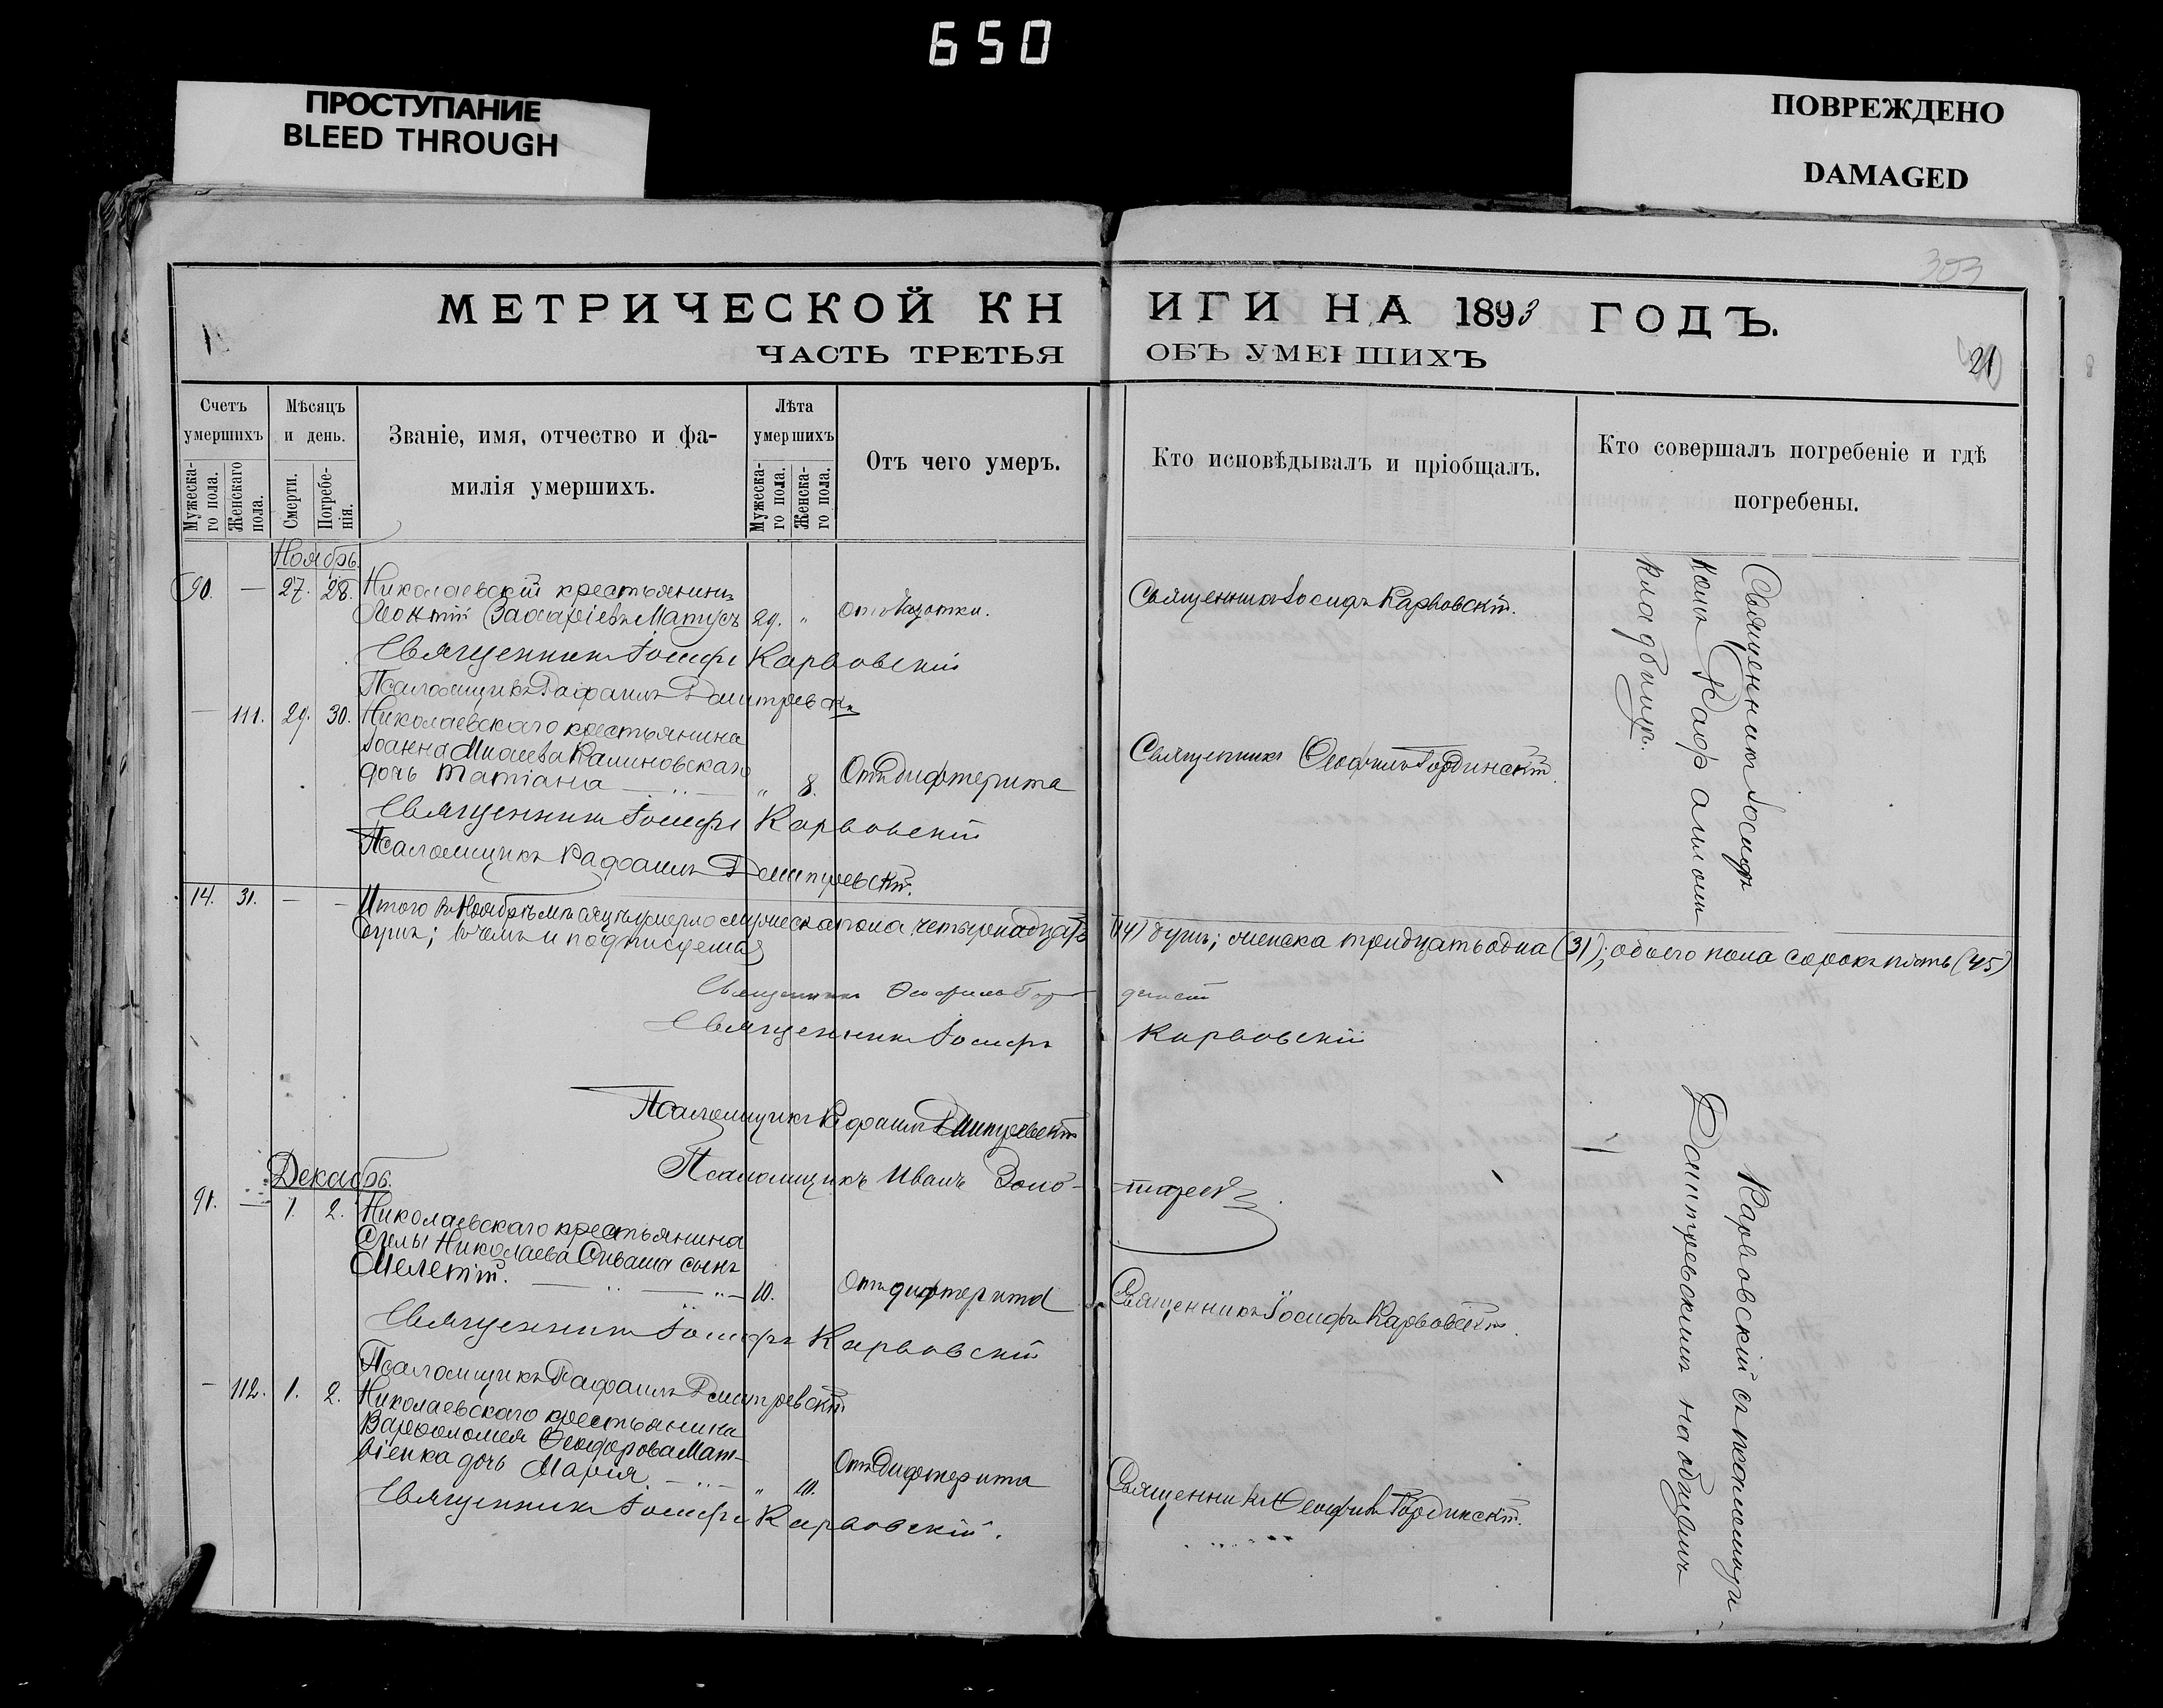 650
ПРОСТУПАНИЕ
BLEED THROUGH
ПОВРЕЖДЕНО
DAMAGED
303
МЕТРИЧЕСКОЙ КНИГИ НА 1893 ГОДЪ.
ЧАСТЬ ТРЕТЬЯ ОБЪ УМЕРШИХЪ
21
Счетъ умершихъ
Мужеска-го пола.
Женскаго пола.
Мѣсяцъ и день.
Смерти.
Погребе-нія.
Званіе, имя, отчество и фа-
милія умершихъ.
Лѣта умершихъ
Мужеска-го пола.
Женска-го пола.
Отъ чего умеръ.
Кто исповѣдывалъ и пріобщалъ.
Кто совершалъ погребеніе и гдѣ
погребены.
Ноябрь.
90. — 27. 28. Николаевскій крестьянинъ
Леонтій Захаріевъ Матусъ 29. „ Отъ чахотки. Священникъ Іосифъ Карвовскій.
Священникъ Іосифъ Карвовскій
Псаломщикъ Рафаилъ Дмитревскій
— 111. 29. 30. Николаевскаго крестьянина
Іоанна Калиновскаго
дочь Татіана „ 8. Отъ дифтерита Священникъ Ѳеофилъ Гординскій.
Священникъ Іосифъ Карвовскій
Псаломщикъ Рафаилъ Дмитревскій.
14. 31. — — Итого въ Ноябрѣ мѣсяцѣ умерло мужеска пола четырнадцать (14) душъ; женска тридцать одна (31); обоего пола сорокъ пять (45)
душъ; въ чемъ и подписуемся
Священникъ Ѳеофилъ Гординскій
Священникъ Іосифъ Карвовскій
Псаломщикъ Рафаилъ Дмитревскій
Псаломщикъ Иванъ
Декабрь.
91. — 1. 2. Николаевскаго крестьянина
Николаева Сиваша сынъ
Мелетій. 10. Отъ дифтерита Священникъ Іосифъ Карвовскій.
Священникъ Іосифъ Карвовскій
Псаломщикъ Рафаилъ Дмитревскій
— 112. 1. 2. Николаевскаго крестьянина
Варѳоломея Ѳеодорова Мат-
віенка дочь Марія „ 10. Отъ дифтерита Священникъ Ѳеофилъ Гординскій.
Священникъ Іосифъ Карвовскій.
Священникъ Іосифъ
Карвовскій съ псаломщи-
комъ Рафаиломъ
Дмитревскимъ на общемъ
кладбищѣ.